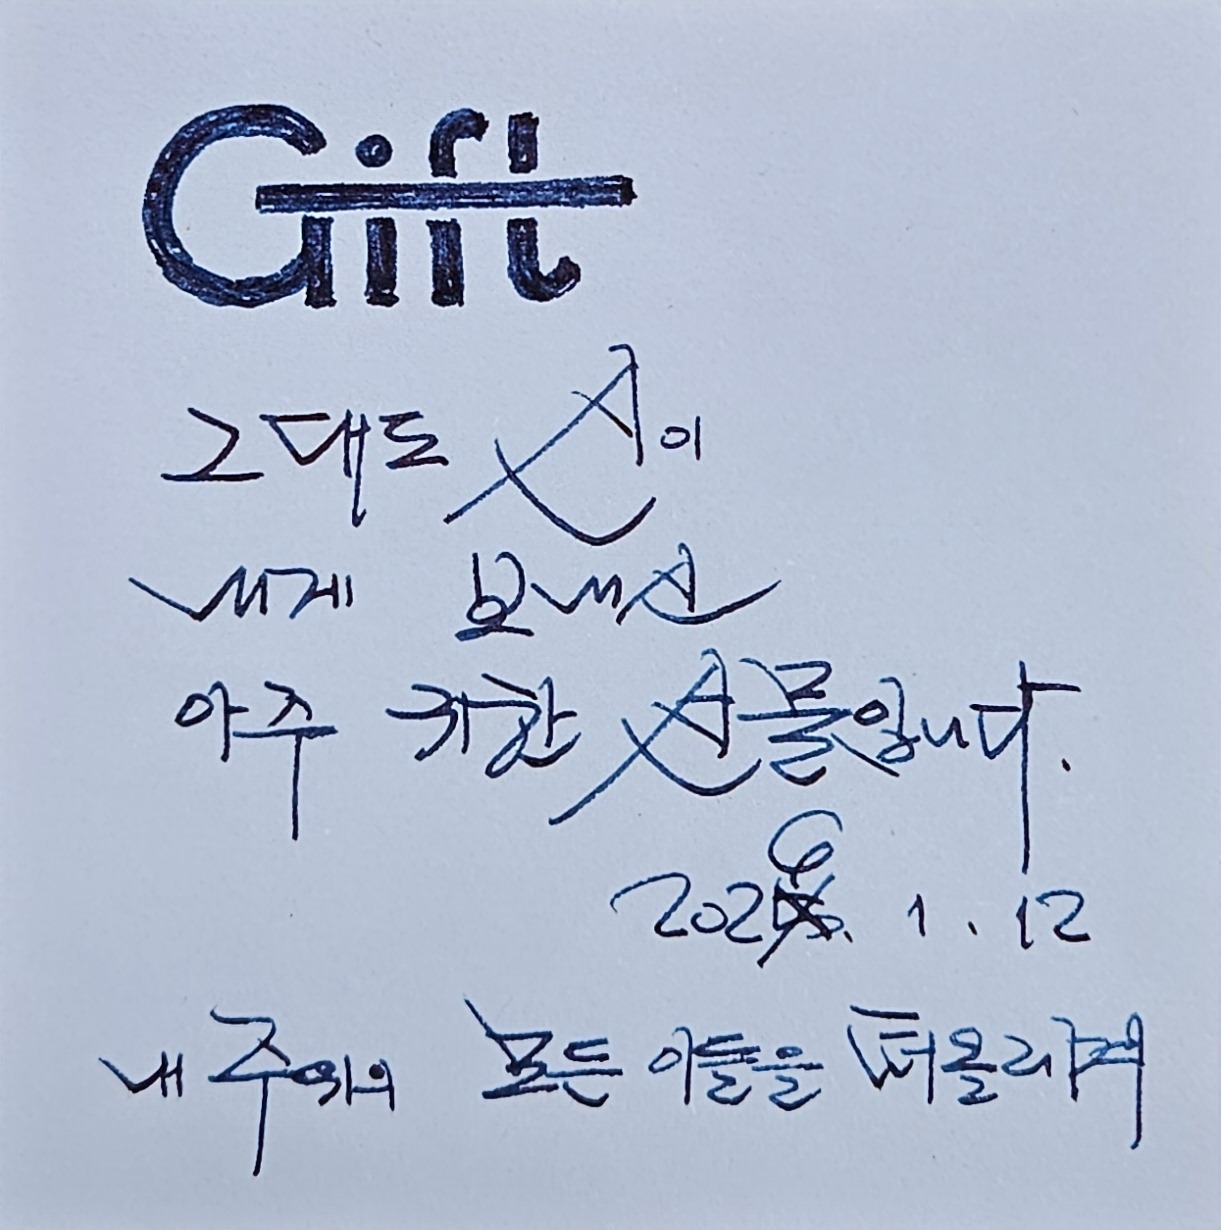 Gift
그대도 신이
내게 보내신
아주 귀한 선물입니다.
2026. 1. 12
내 주위의 모든 이들을 떠올리며